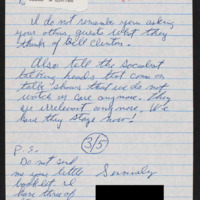 I do not remember you asking
your other guests what they
think of Bill Clinton.
Also tell the socalled
talking heads that come on
talk shows that we do not
watch or care anymore. They
are irrelevant anymore. We
hope they stage now!
3/5
P.S.
Do not send
me your little Sincerely
booklet. I
have three of